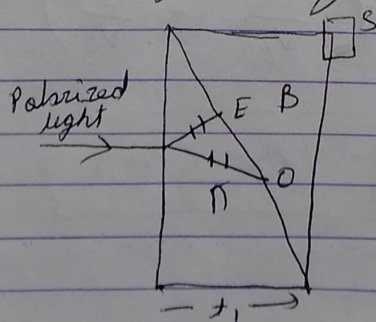 S
Polarized
light
E
B
O
t₁